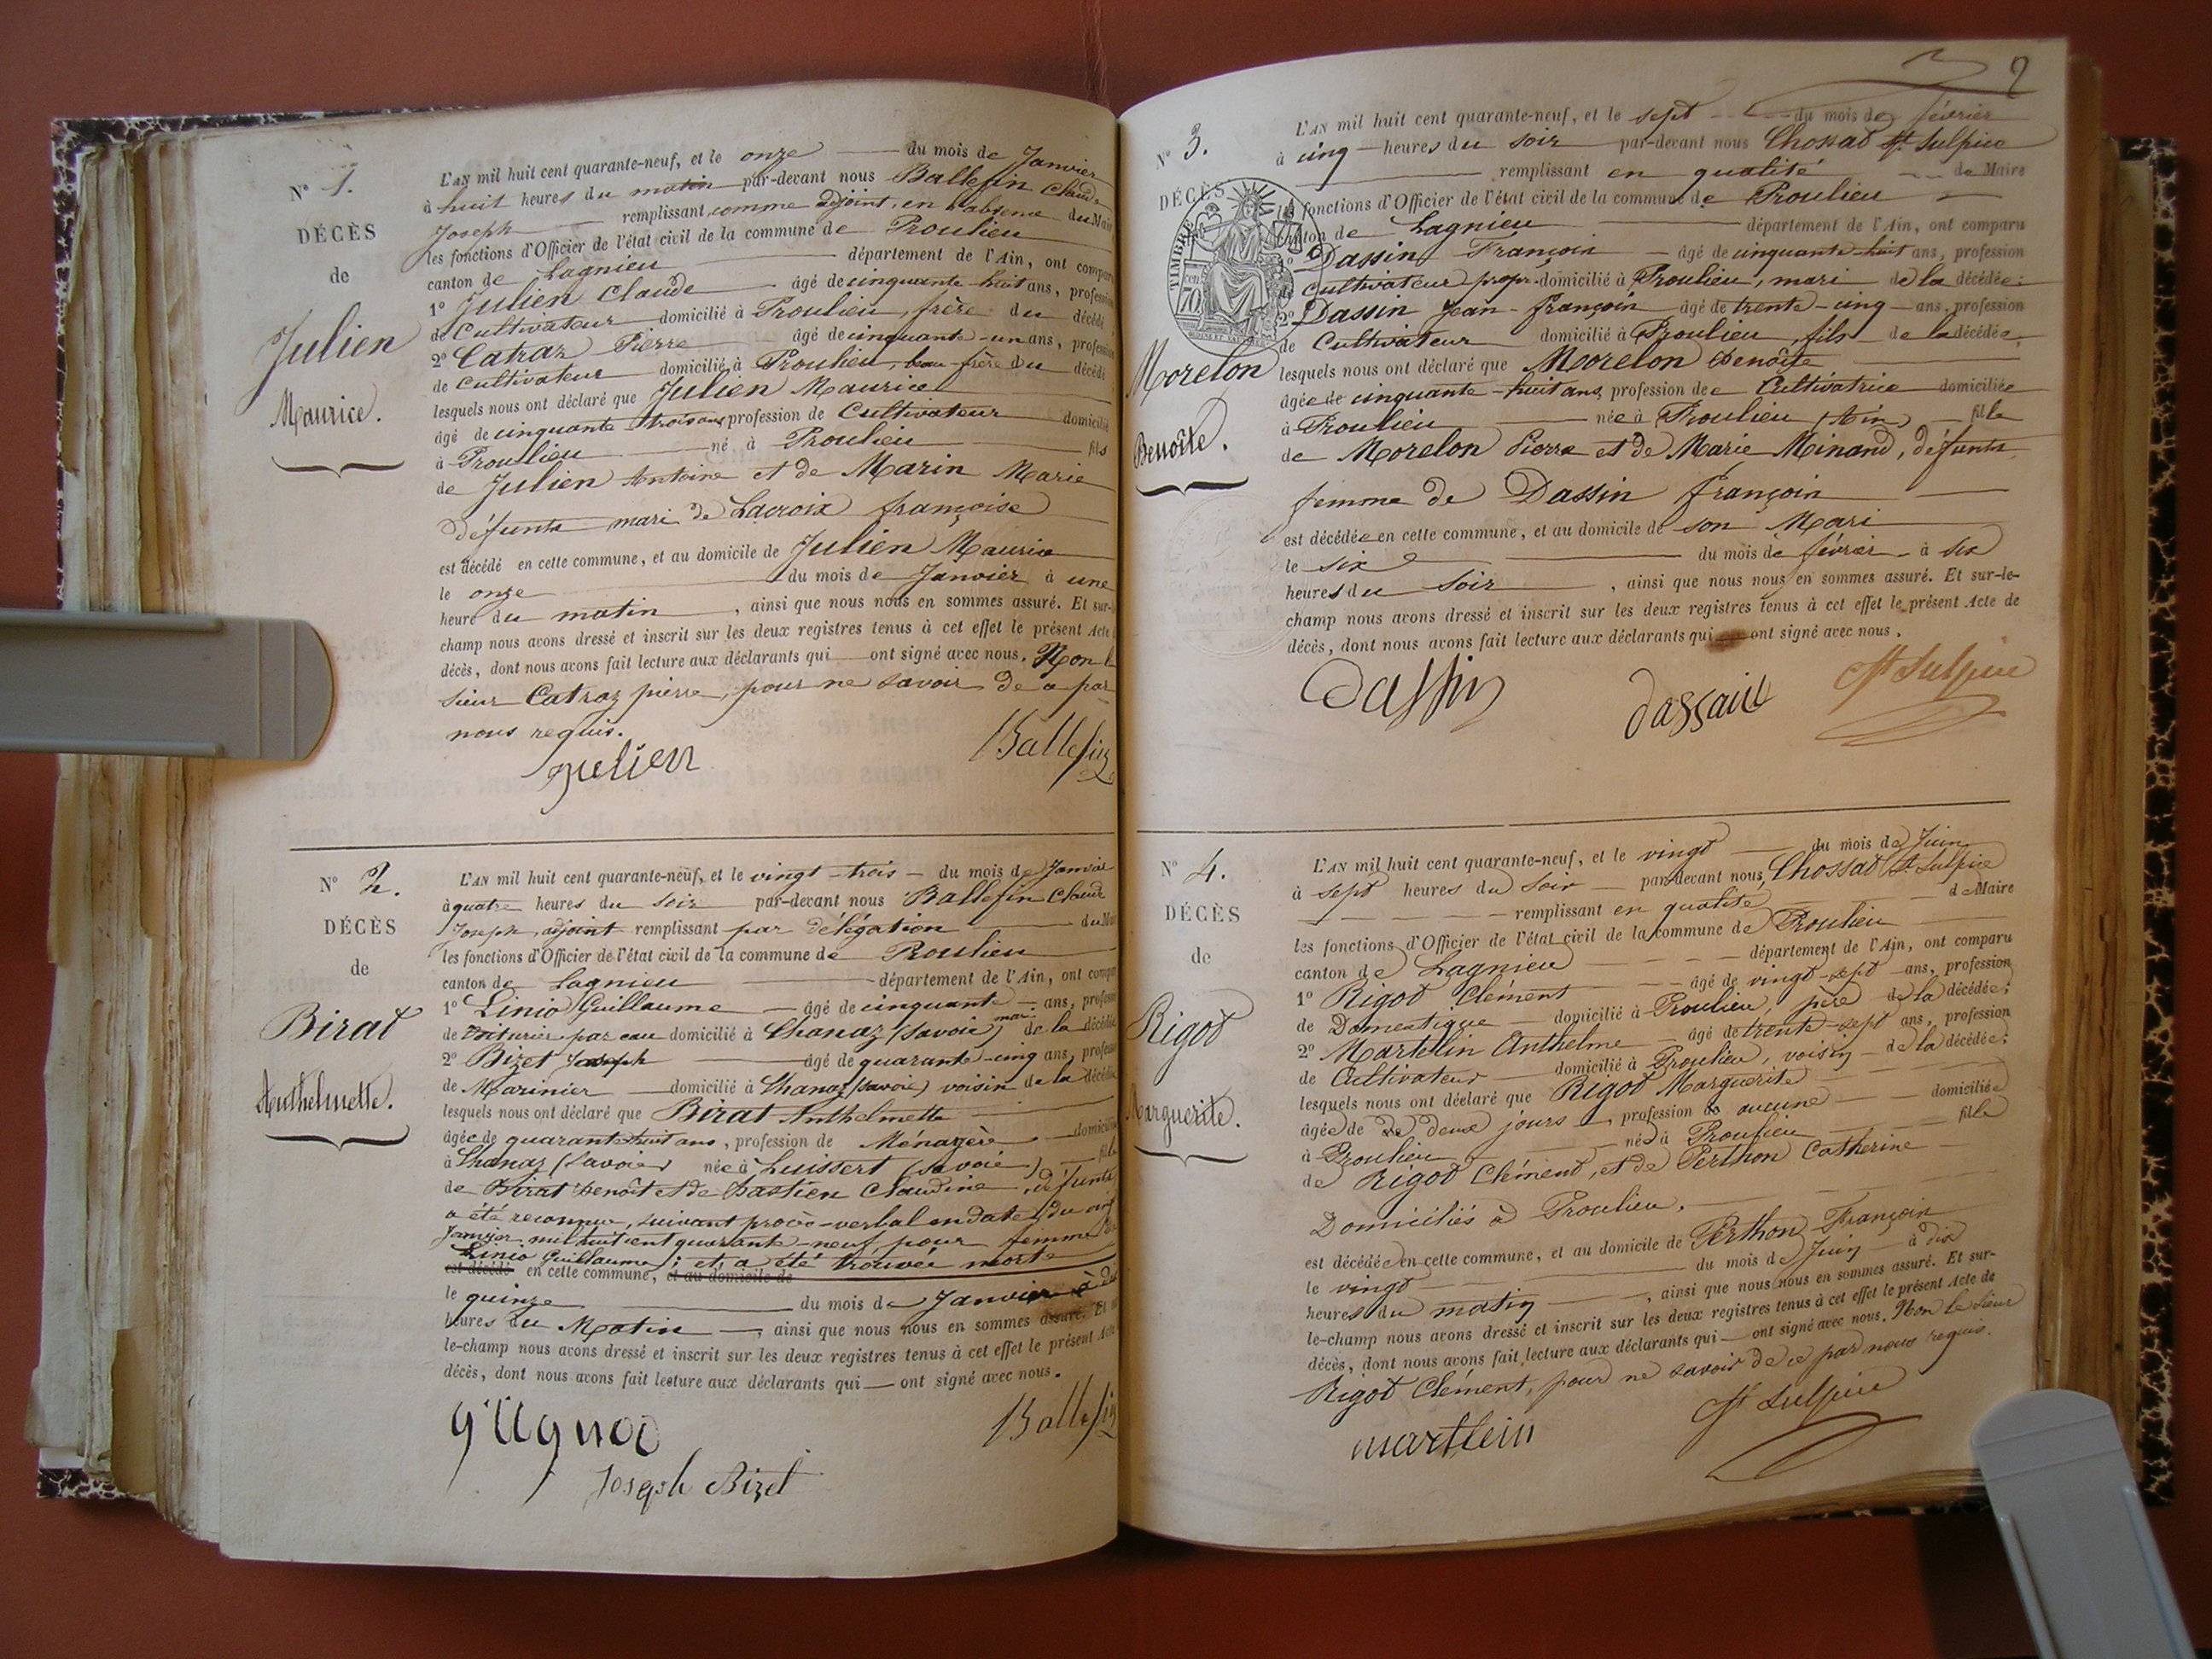 N° 1.
DÉCÈS
de
Julien
Maurice.
L'AN mil huit cent quarante-neuf, et le onze du mois de Janvier
à huit heures du matin par-devant nous Ballefin Claude
Joseph remplissant comme adjoint, en l'absence du Maire
les fonctions d'Officier de l'état civil de la commune de Proulieu
canton de Lagnieu département de l'Ain, ont comparu
1° Julien Claude âgé de cinquante-huit ans, profession
de Cultivateur domicilié à Proulieu, frère du décédé
2° Catraz Pierre âgé de cinquante-un ans, profession
de Cultivateur domicilié à Proulieu, beau-frère du décédé
lesquels nous ont déclaré que Julien Maurice
âgé de cinquante trois ans profession de Cultivateur domicilié
à Proulieu né à Proulieu fils
de Julien Antoine et de Marin Marie
défunts mari de Lacroix françoise
est décédé en cette commune, et au domicile de Julien Maurice
le onze du mois de Janvier à une
heure du matin, ainsi que nous nous en sommes assuré. Et sur-
champ nous avons dressé et inscrit sur les deux registres tenus à cet effet le présent Acte
décès, dont nous avons fait lecture aux déclarants qui ont signé avec nous. Non le
sieur Catraz pierre, pour ne savoir de ce par
nous requis.
Julien Ballefin
N° 2.
DÉCÈS
de
Birat
Anthelmette.
L'AN mil huit cent quarante-neuf, et le vingt-trois du mois de Janvier
à quatre heures du soir par-devant nous Ballefin Claude
Joseph, adjoint remplissant par délégation du Maire
les fonctions d'Officier de l'état civil de la commune de Proulieu
canton de Lagnieu département de l'Ain, ont comparu
1° Linio Guillaume âgé de cinquante ans, profession
de Voiturier par eau domicilié à Chanaz (Savoie) mari de la décédée
2° Bizet Joseph âgé de quarante-cinq ans, profession
de Marinier domicilié à Chanaz (Savoie) voisin de la décédée
lesquels nous ont déclaré que Birat Anthelmette
âgée de quarante huit ans, profession de Ménagère domiciliée
à Chanaz (Savoie) née à Luissert (Savoie) fille
de Birat Benoît et de Bastien Claudine, défunts
a été reconnue, suivant procès-verbal en date du
Janvier mil huit cent quarante-neuf pour femme de
Linio Guillaume; et, a été trouvée morte
est décédé en cette commune, et au domicile de
le quinze du mois de Janvier à dix
heures du Matin, ainsi que nous nous en sommes assuré. Et
le-champ nous avons dressé et inscrit sur les deux registres tenus à cet effet le présent Acte
décès, dont nous avons fait lecture aux déclarants qui ont signé avec nous.
Ballefin
Joseph Bizet
2
N° 3.
DÉCÈS
TIMBRE
70
Morelon
Benoîte.
L'AN mil huit cent quarante-neuf, et le sept du mois de février
à cinq heures du soir par-devant nous Chossat St. Sulpice
remplissant en qualité de Maire
les fonctions d'Officier de l'état civil de la commune de Proulieu
canton de Lagnieu département de l'Ain, ont comparu
1° Dassin François âgé de cinquante-huit ans, profession
de Cultivateur propr. domicilié à Proulieu, mari de la décédée;
2° Dassin Jean-françois âgé de trente-cinq ans, profession
de Cultivateur domicilié à Proulieu, fils de la décédée,
lesquels nous ont déclaré que Morelon Benoîte
âgée de cinquante-huit ans, profession de Cultivatrice domiciliée
à Proulieu née à Proulieu (Ain) fille
de Morelon Pierre et de Marie Minand, défunts
femme de Dassin françois
est décédée en cette commune, et au domicile de son Mari
le six du mois de février à six
heures du soir, ainsi que nous nous en sommes assuré. Et sur-le-
champ nous avons dressé et inscrit sur les deux registres tenus à cet effet le présent Acte de
décès, dont nous avons fait lecture aux déclarants qui ont signé avec nous.
Dassin dassain St Sulpice
N° 4.
DÉCÈS
de
Rigot
Marguerite.
L'AN mil huit cent quarante-neuf, et le vingt du mois de Juin
à sept heures du soir par-devant nous, Chossat St. Sulpice
remplissant en qualité de Maire
les fonctions d'Officier de l'état civil de la commune de Proulieu
canton de Lagnieu département de l'Ain, ont comparu
1° Rigot Clément âgé de vingt-sept ans, profession
de Domestique domicilié à Proulieu, père de la décédée;
2° Martelin Anthelme âgé de trente-sept ans, profession
de Cultivateur domicilié à Proulieu, voisin de la décédée;
lesquels nous ont déclaré que Rigot Marguerite
âgée de de deux jours, profession de aucune domiciliée
à Proulieu née à Proulieu fille
de Rigot Clément, et de Perthon Catherine
Domiciliés à Proulieu.
est décédée en cette commune, et au domicile de Perthon François
le vingt du mois de Juin à dix
heures du matin, ainsi que nous nous en sommes assuré. Et sur-
le-champ nous avons dressé et inscrit sur les deux registres tenus à cet effet le présent Acte de
décès, dont nous avons fait lecture aux déclarants qui ont signé avec nous. Non le sieur
Rigot Clément, pour ne savoir de ce par nous requis.
martlein St Sulpice